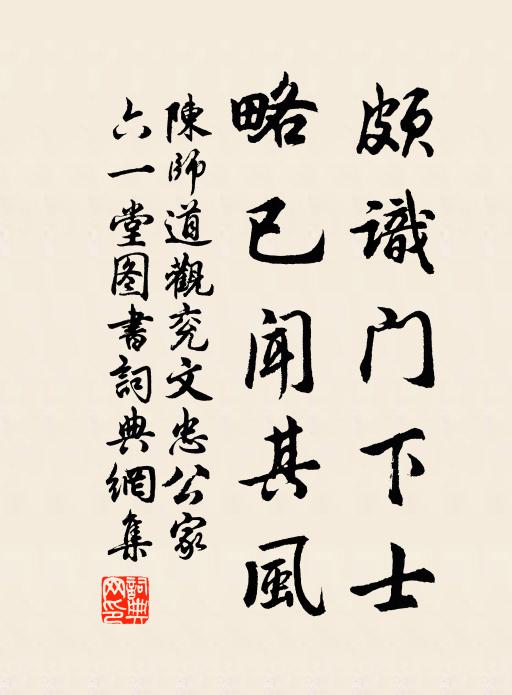 頗識門下士
略已聞其風
陳師道觀兖文忠公家
六一堂图書詞典網集
詞典網印